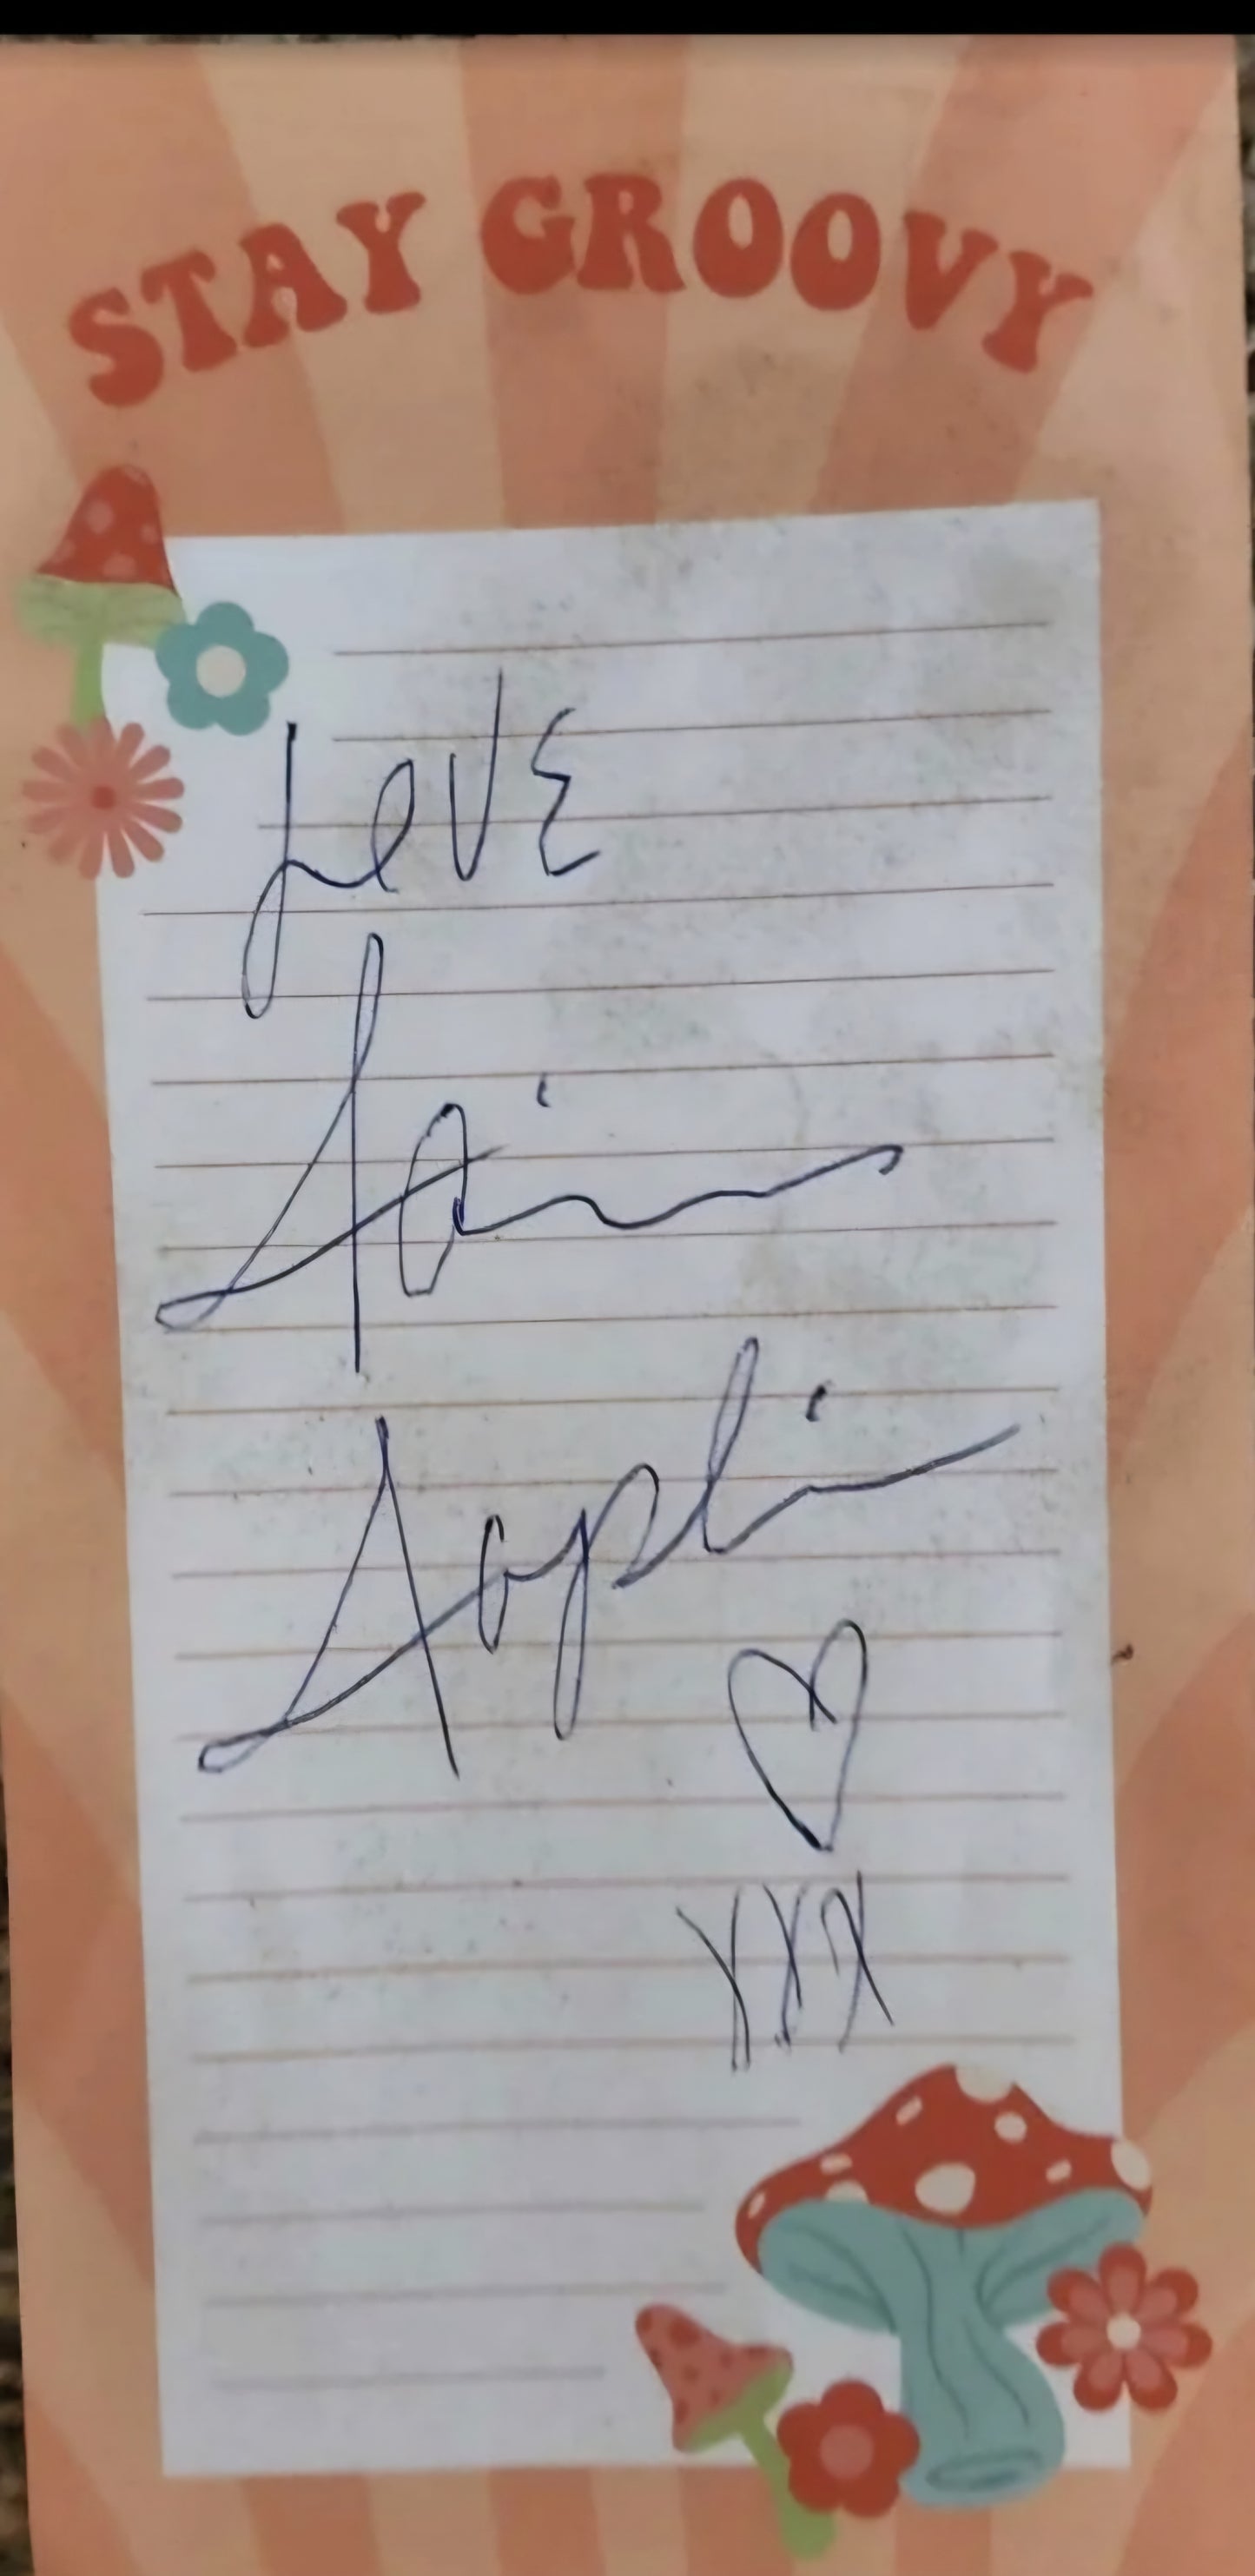 STAY GROOVY
Love
Janis
Joplin
XXX